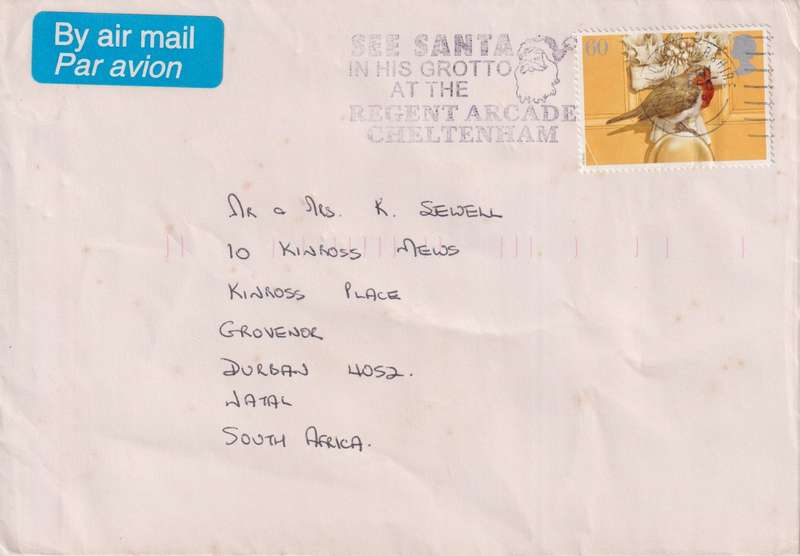 By air mail
Par avion
SEE SANTA
IN HIS GROTTO
AT THE
REGENT ARCADE
CHELTENHAM
60
Mr & Mrs. K. SEWELL
10 KINROSS MEWS
KINROSS PLACE
GROVENOR
DURBAN 4052.
NATAL
SOUTH AFRICA.